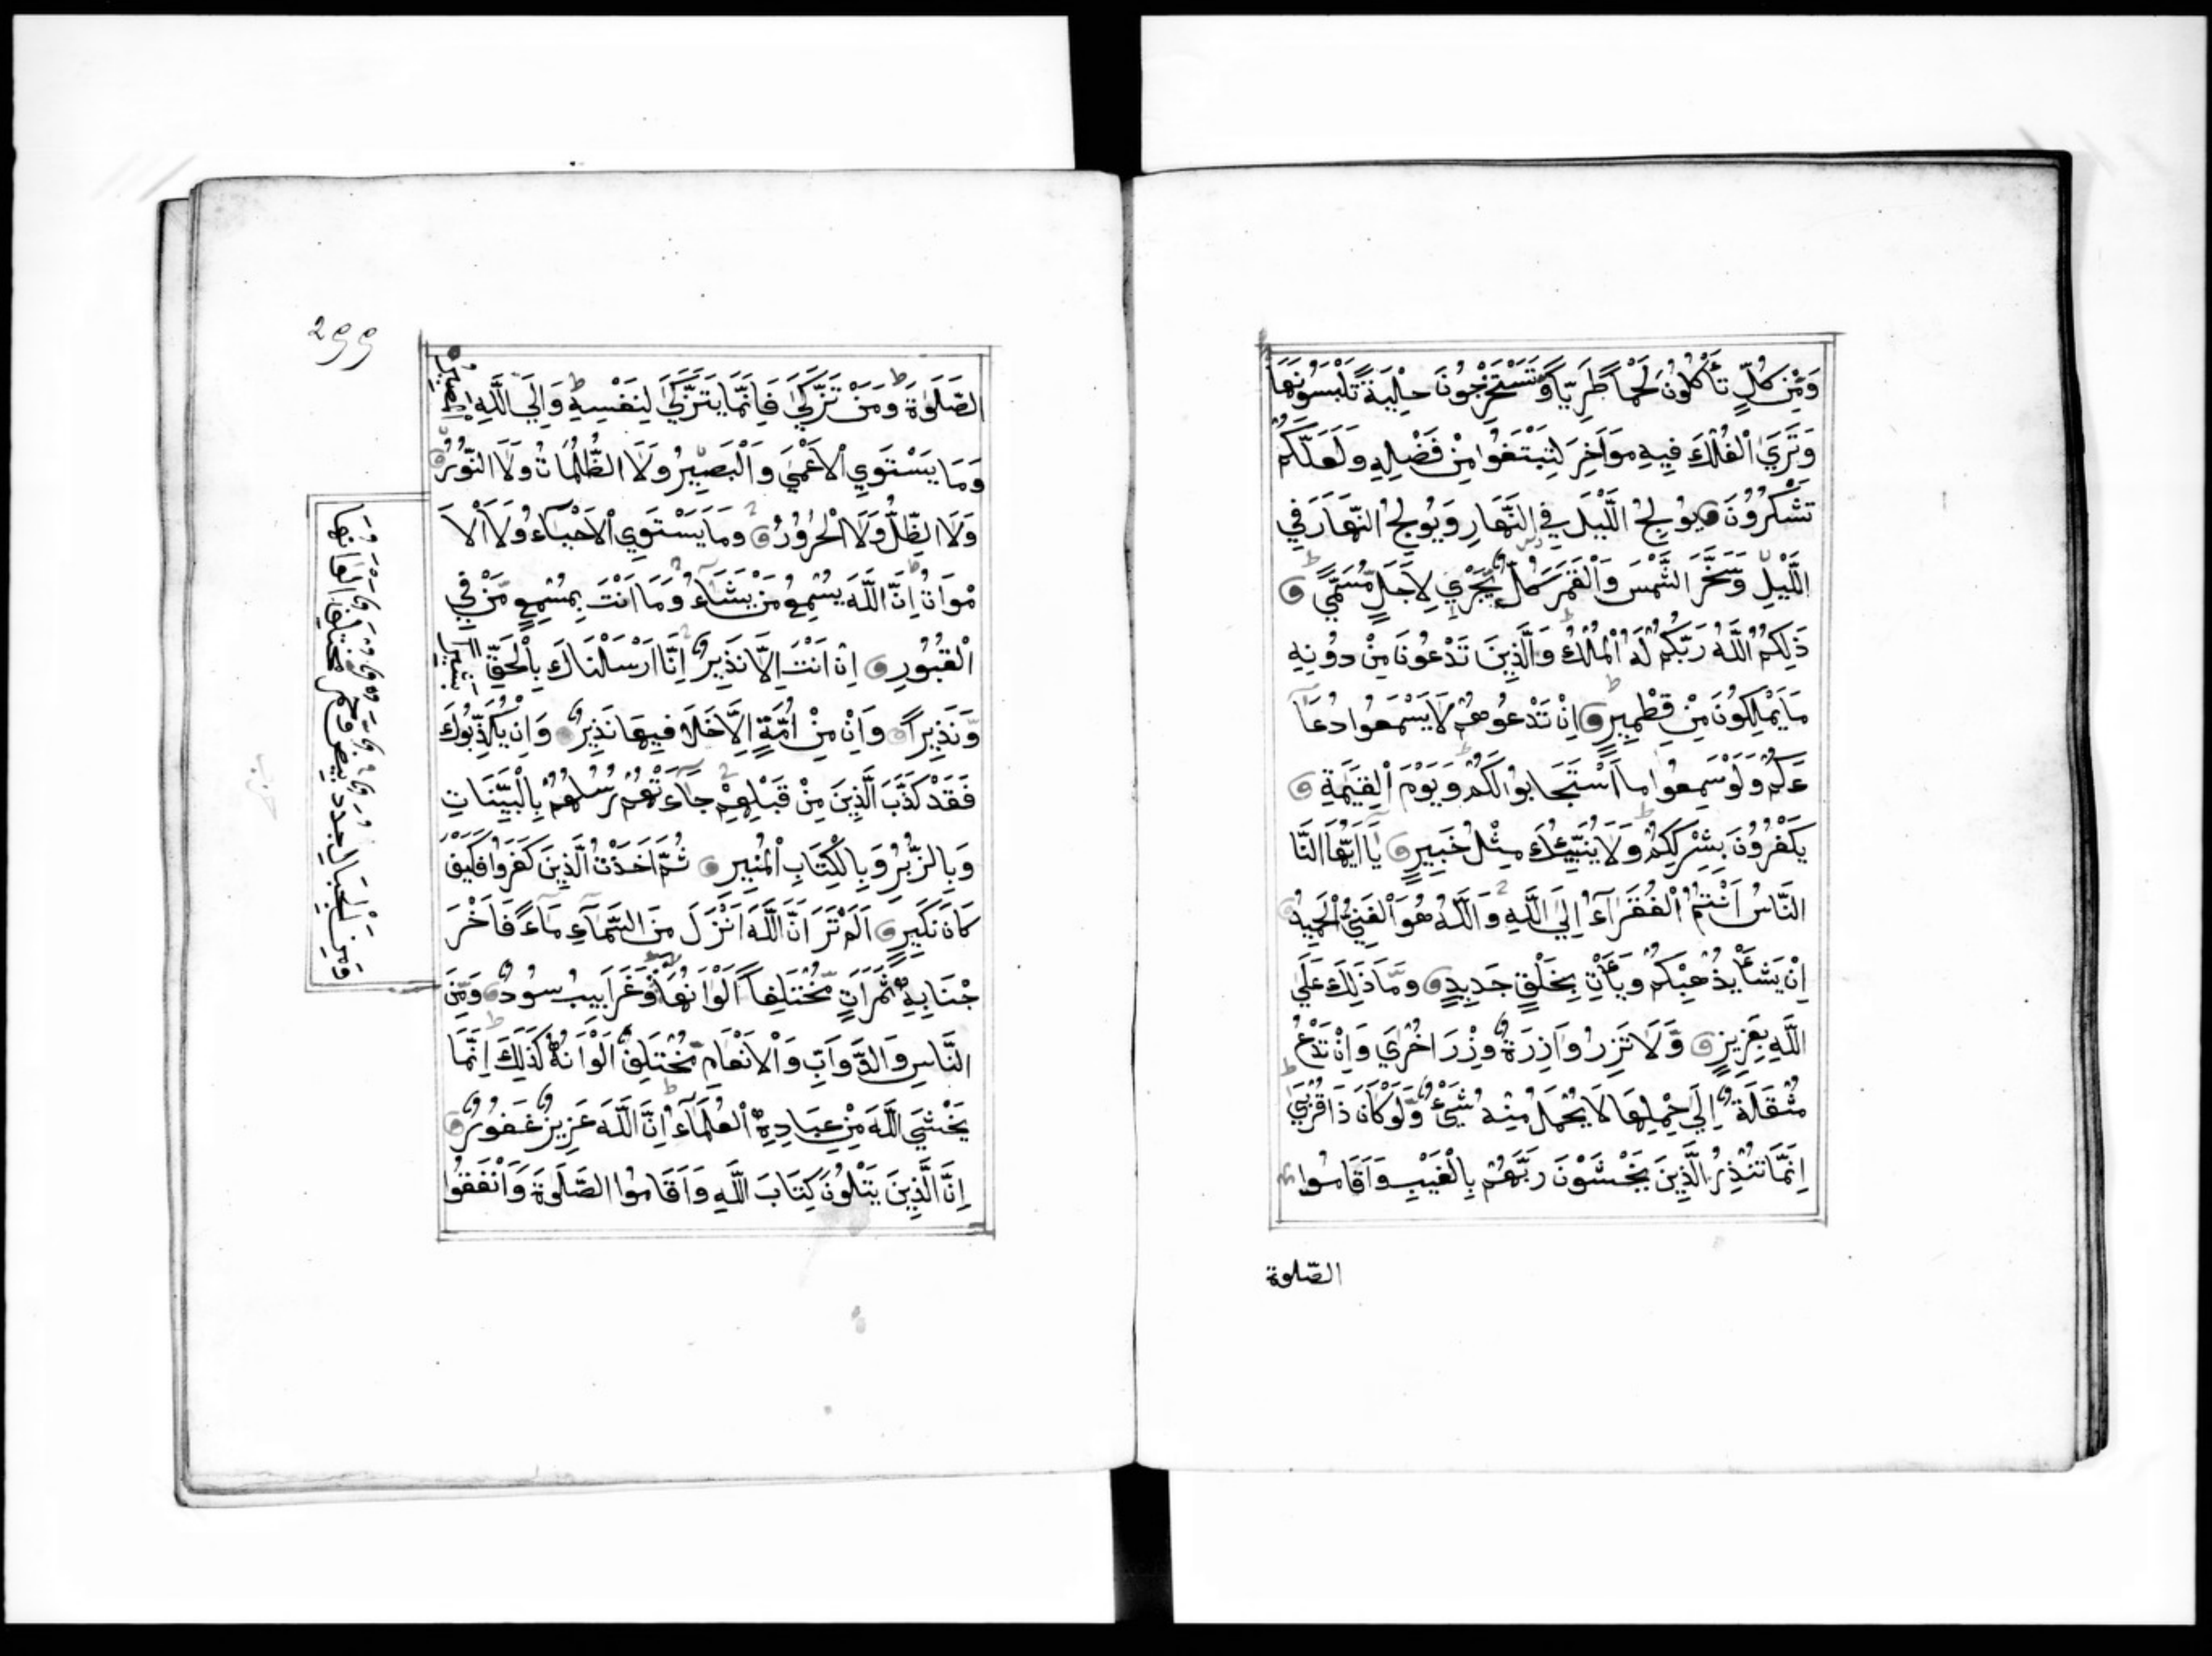 وَمِنْ كُلٍّ تَأْكُلُونَ لَحْمًا طَرِيًّا وَّتَسْتَخْرِجُونَ حِلْيَةً تَلْبَسُونَهَا
وَتَرَي الْفُلْكَ فِيهِ مَوَاخِرَ لِتَبْتَغُوا مِنْ فَضْلِهِ وَلَعَلَّكُمْ
تَشْكُرُوْنَ يُوْلِجُ اللَّيْلَ فِي النَّهَارِ وَيُوْلِجُ النَّهَارَ فِي
اللَّيْلِ وَسَخَّرَ الشَّمْسَ وَالْقَمَرَ كُلٌّ يَّجْرِي لِاَجَلٍ مُّسَمًّي
ذَلِكُمُ اللَّهُ رَبُّكُمْ لَهُ الْمُلْكُ وَالَّذِينَ تَدْعُونَ مِنْ دُوْنِهِ
مَا يَمْلِكُونَ مِنْ قِطْمِيرٍ اِنْ تَدْعُوهُمْ لَا يَسْمَعُوا دُعَآ
ءَكُمْ وَلَوْ سَمِعُوا مَا اسْتَجَابُوْا لَكُمْ وَيَوْمَ الْقِيَمَةِ
يَكْفُرُوْنَ بِشِرْكِكُمْ وَلَا يُنَبِّئُكَ مِثْلُ خَبِيرٍ يَا اَيُّهَا النَّا
النَّاسُ اَنْتُمُ الْفُقَرَآءُ اِلَي اللَّهِ وَاللَّهُ هُوَ الْغَنِيُّ الْحَمِيدُ
اِنْ يَشَأْ يُذْهِبْكُمْ وَيَأْتِ بِخَلْقٍ جَدِيدٍ وَمَا ذَلِكَ عَلَي
اللَّهِ بِعَزِيزٍ وَلَا تَزِرُ وَازِرَةٌ وِّزْرَ اُخْرَي وَاِنْ تَدْعُ
مُثْقَلَةٌ اِلَي حِمْلِهَا لَا يُحْمَلْ مِنْهُ شَيْءٌ وَّلَوْ كَانَ ذَا قُرْبَي
اِنَّمَا تُنْذِرُ الَّذِينَ يَخْشَوْنَ رَبَّهُمْ بِالْغَيْبِ وَاَقَامُوا
الصّلوة
٢٩٩
الصَّلَوٰةَ وَمَنْ تَزَكَّي فَاِنَّمَا يَتَزَكَّي لِنَفْسِهِ وَاِلَي اللَّهِ الْمَصِيرُ
وَمَا يَسْتَوِي الْاَعْمَي وَالْبَصِيْرُ وَلَا الظُّلُمَاتُ وَلَا النُّوْرُ
وَلَا الظِّلُّ وَلَا الْحَرُوْرُ وَمَا يَسْتَوِي الْاَحْيَآءُ وَلَا الْاَ
مْوَاتُ اِنَّ اللَّهَ يُسْمِعُ مَنْ يَشَآءُ وَمَا اَنْتَ بِمُسْمِعٍ مَّنْ فِي
الْقُبُوْرِ اِنْ اَنْتَ اِلَّا نَذِيرٌ اِنَّا اَرْسَلْنَاكَ بِالْحَقِّ بَشِيرًا
وَّنَذِيرًا وَاِنْ مِنْ اُمَّةٍ اِلَّا خَلَا فِيهَا نَذِيرٌ وَاِنْ يُّكَذِّبُوكَ
فَقَدْ كَذَّبَ الَّذِينَ مِنْ قَبْلِهِمْ جَآءَتْهُمْ رُسُلُهُمْ بِالْبَيِّنَاتِ
وَبِالزُّبُرِ وَبِالْكِتَابِ الْمُنِيرِ ثُمَّ اَخَذْتُ الَّذِينَ كَفَرُوا فَكَيْفَ
كَانَ نَكِيرِ اَلَمْ تَرَ اَنَّ اللَّهَ اَنْزَلَ مِنَ السَّمَآءِ مَآءً فَاَخْرَ
جْنَا بِهِ ثَمَرَاتٍ مُّخْتَلِفًا اَلْوَانُهَا وَغَرَابِيبُ سُودٌ وَمِنَ
النَّاسِ وَالدَّوَآبِّ وَالْاَنْعَامِ مُخْتَلِفٌ اَلْوَانُهُ كَذَلِكَ اِنَّمَا
يَخْشَي اللَّهَ مِنْ عِبَادِهِ الْعُلَمَآءُ اِنَّ اللَّهَ عَزِيزٌ غَفُوْرٌ
اِنَّ الَّذِينَ يَتْلُونَ كِتَابَ اللَّهِ وَاَقَامُوا الصَّلَوةَ وَاَنْفَقُوا
وَمِنَ الْجِبَالِ جُدَدٌ بِيضٌ وَّحُمْرٌ مُّخْتَلِفٌ اَلْوَانُهَا